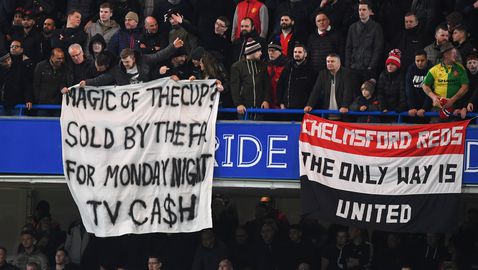 MAGIC OF THE CUP?
SOLD BY THE FA
FOR MONDAY NIGHT
TV CA$H
RIDE
CHELMSFORD REDS
THE ONLY WAY IS
UNITED